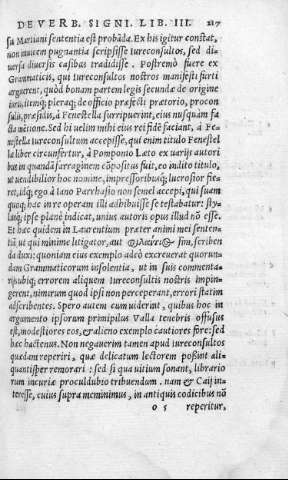 DE VERB. SIGNI. LIB. III. 217
sa Martiani sententia est probāda. Ex his igitur constat,
non inuicem pugnantia scripsisse iureconsultos, sed di-
uersa diuersis casibus tradidisse. Postremò fuere ex
Grammaticis, qui iureconsultos nostros manifesti furti
arguerent, quòd bonam partem legis secundæ de origine
iuris, itemq́; pleraq; de officio præfecti prætorio, procon
sulis, præsidis, à Fenestella surripuerint, eius nusquàm fa
cta mētione. Sed hi uelim mihi eius rei fidē faciant, à Fe
nestella iureconsultum accepisse, qui enim titulo Fenestel
la liber circunfertur, à Pomponio Læto ex uarijs autori
bus in quandā farraginem cōpositus fuit, eo indito titulo,
ut uendibilior hoc nomine, impressoribusq́; lucrosior fie-
ret, idq́; ego à Iano Parrhasio non semel accepi, qui suam
quoq; hac in re operam illi adhibuisse se testabatur: sty-
lusq́; ipse planè indicat, unius autoris opus illud nō esse.
Et hæc quidem in Laurentium præter animi mei senten
tiā ut qui minime litigator, aut sim, scriben
da duxi: quoniam eius exemplo adeò excreuerat quorun-
dam Grammaticorum insolentia, ut in suis commenta-
rijs ubiq; errorem aliquem iureconsultis nostris impin-
gerent, nimirum quod ipsi non perceperant, errori statim
adscribentes. Spero autem cum uiderint, quibus hoc in
argumento ipsorum primipilus Valla tenebris offusus
est, modestiores eos, & alieno exemplo cautiores fore: sed
hæc hactenus. Non negauerim tamen apud iureconsultos
quædam reperiri, quæ delicatum lectorem possint ali-
quantisper remorari: sed si qua uitium sonant, librario
rum incuriæ proculdubio tribuendum. nam & Caij in-
teresse, cuius supra meminimus, in antiquis codicibus nō
o 5 reperitur,